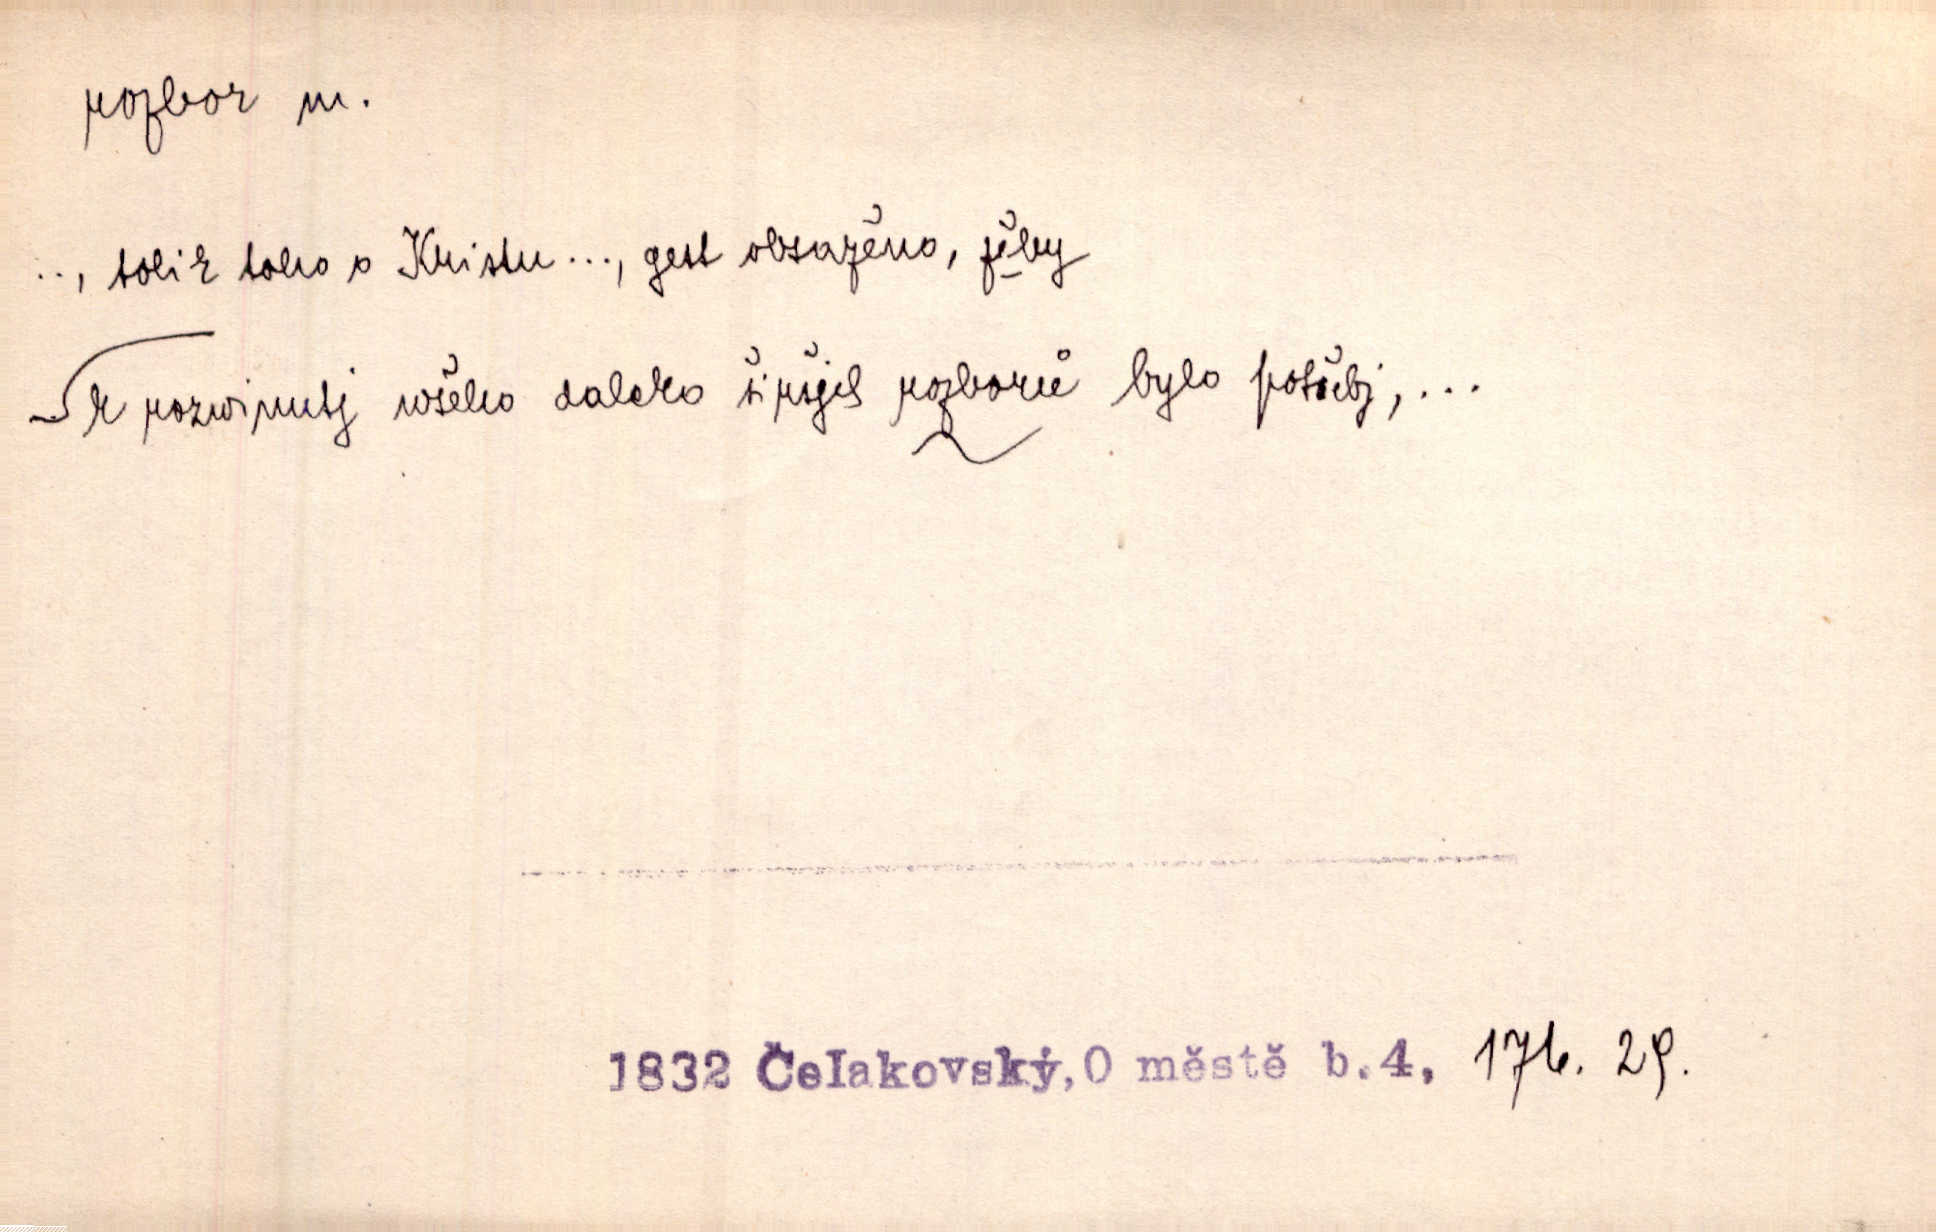 rozbor m.
.., tolik toho o Kristu ..., gest obsaženo, žeby
k rozwinutj wšeho daleko širšjch rozborů bylo potřebj, ...
1832 Čelakovský, O městě b. 4, 176. 29.